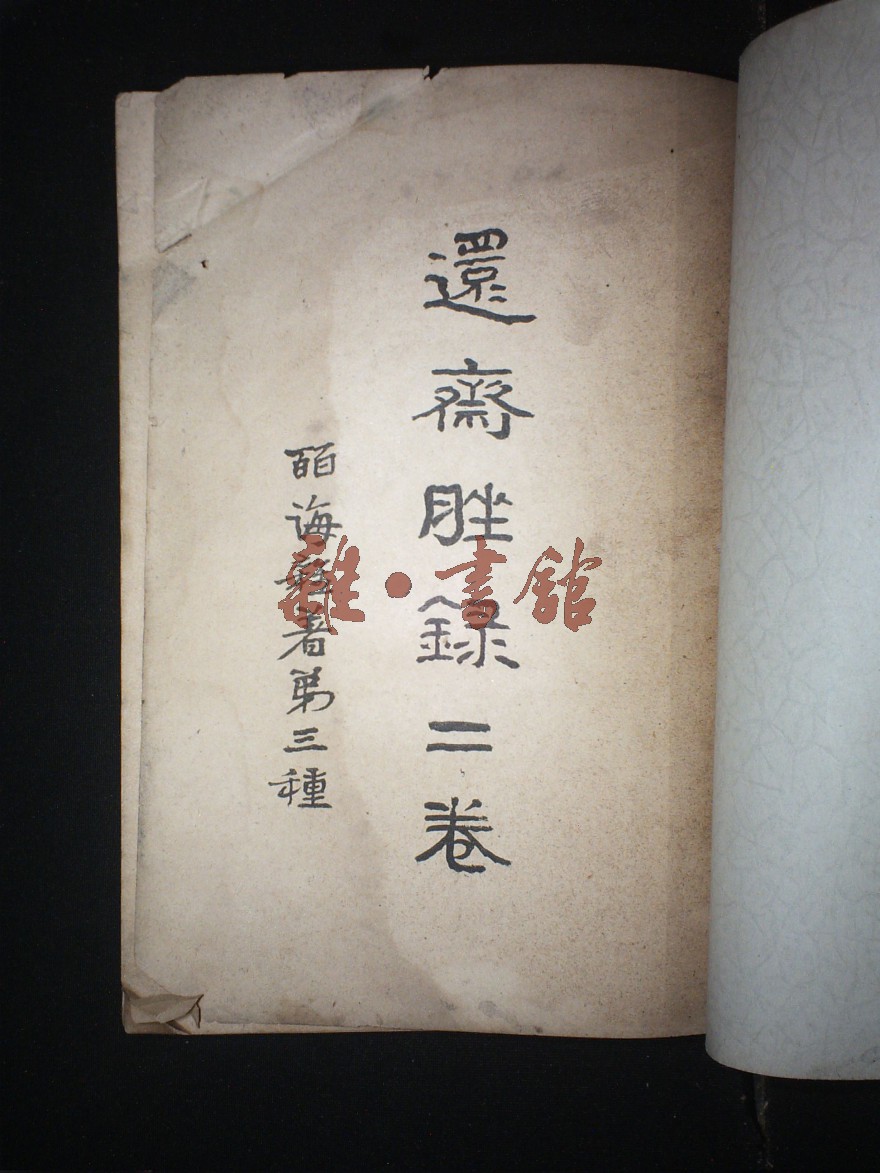 還齋脞錄二卷
皕誨著第三種
雜·書館